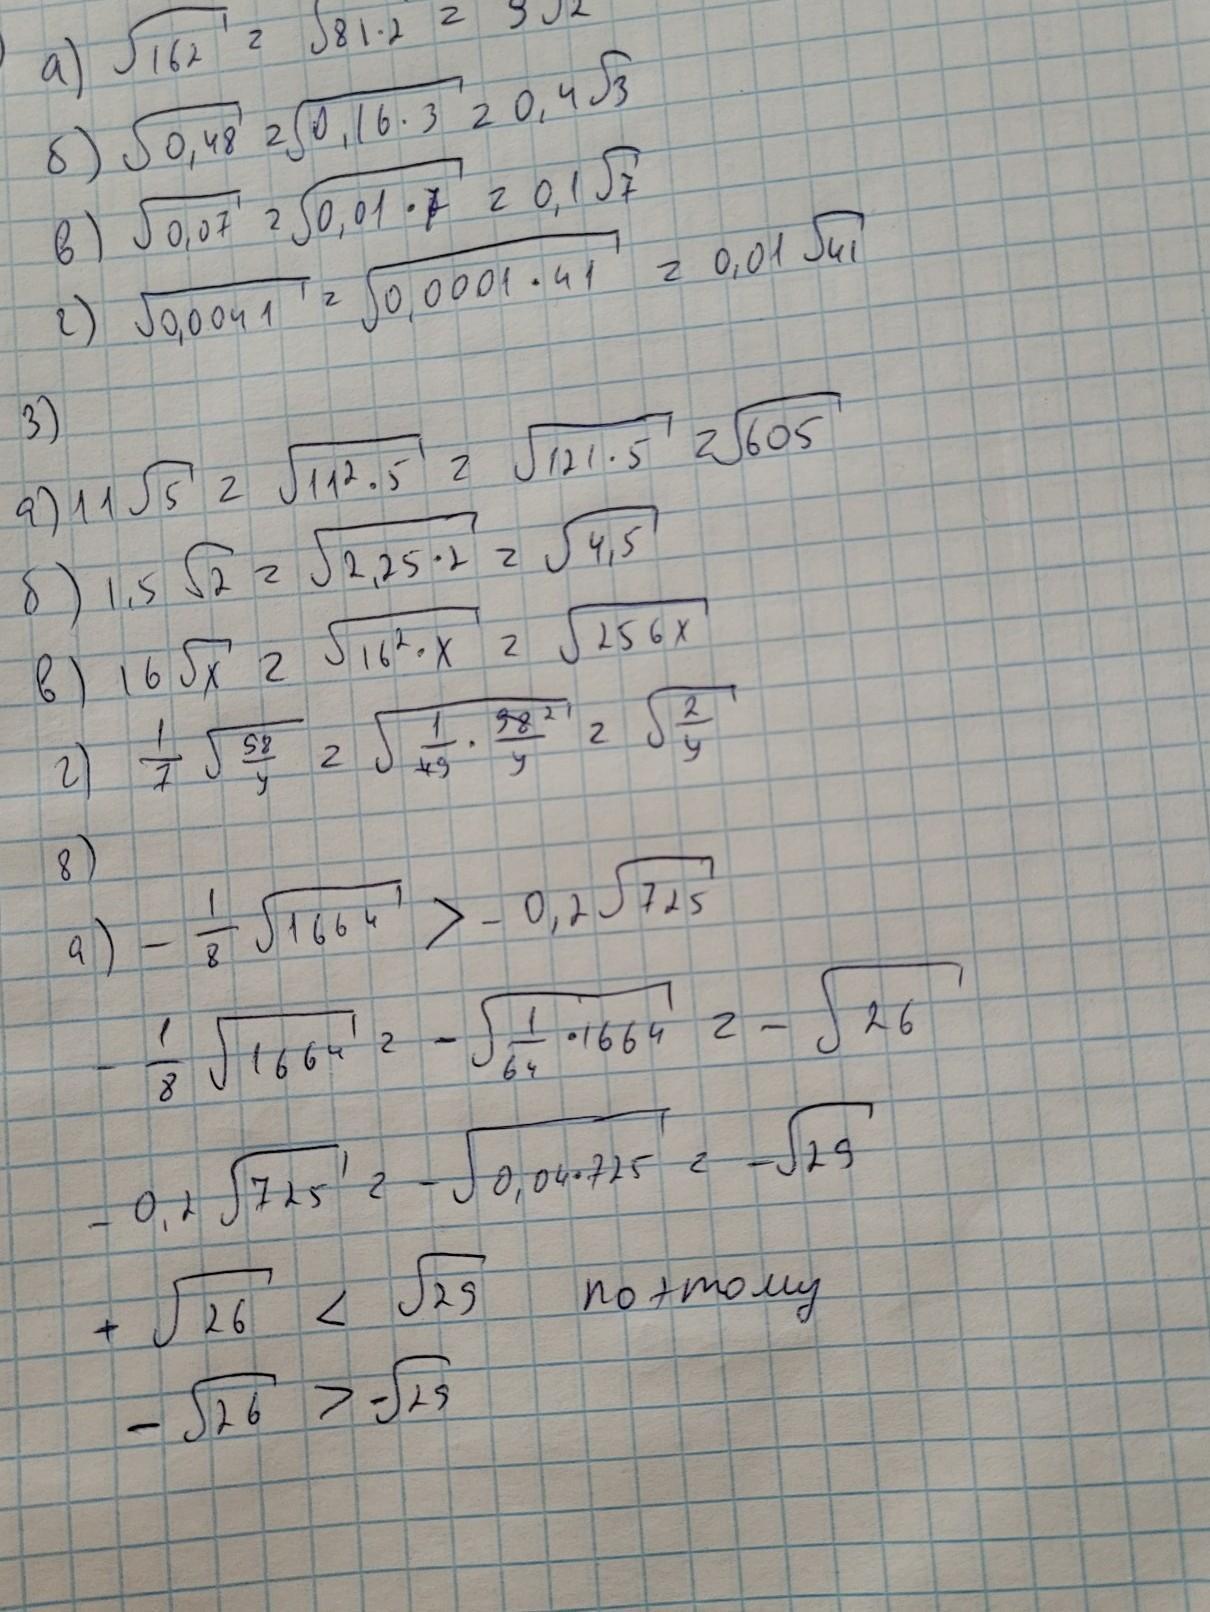 а) √162 = √81·2 = 9√2
б) √0,48 = √0,16·3 = 0,4√3
в) √0,07 = √0,01·7 = 0,1√7
г) √0,0041 = √0,0001·41 = 0,01√41
3)
а) 11√5 = √11²·5 = √121·5 = √605
б) 1,5√2 = √2,25·2 = √4,5
в) 16√x = √16²·x = √256x
г) 1/7 √98/y = √1/49 · 98²/y = √2/y
8)
а) - 1/8 √1664 > - 0,2√725
- 1/8 √1664 = - √1/64 · 1664 = - √26
- 0,2√725 = - √0,04·725 = - √29
+ √26 < √29 поэтому
- √26 > -√29